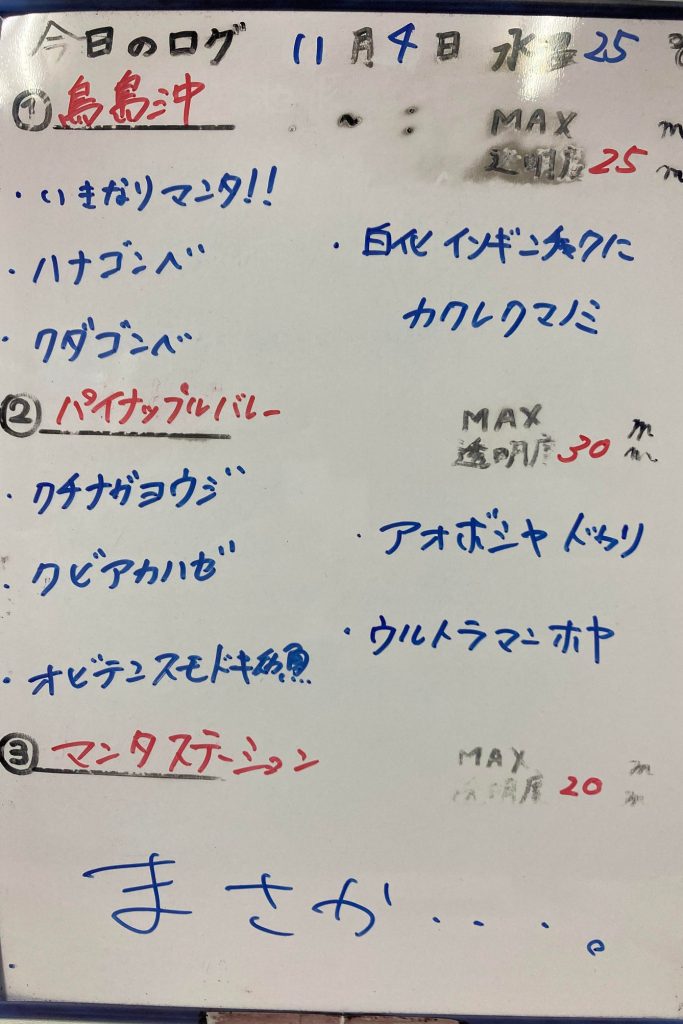 今日のログ 11月4日 水温25℃
① 鳥島沖 ~ : MAX m
透明度25m
・いきなりマンタ!!
・ハナゴンベ
・クダゴンベ
・白化イソギンチャクに
カクレクマノミ
② パイナップルバレー MAX m
透明度30m
・クチナガヨウジ
・クビアカハゼ
・オビテンスモドキ幼魚
・アオボシヤドカリ
・ウルトラマンホヤ
③ マンタステーション MAX m
透明度20m
まさか....。